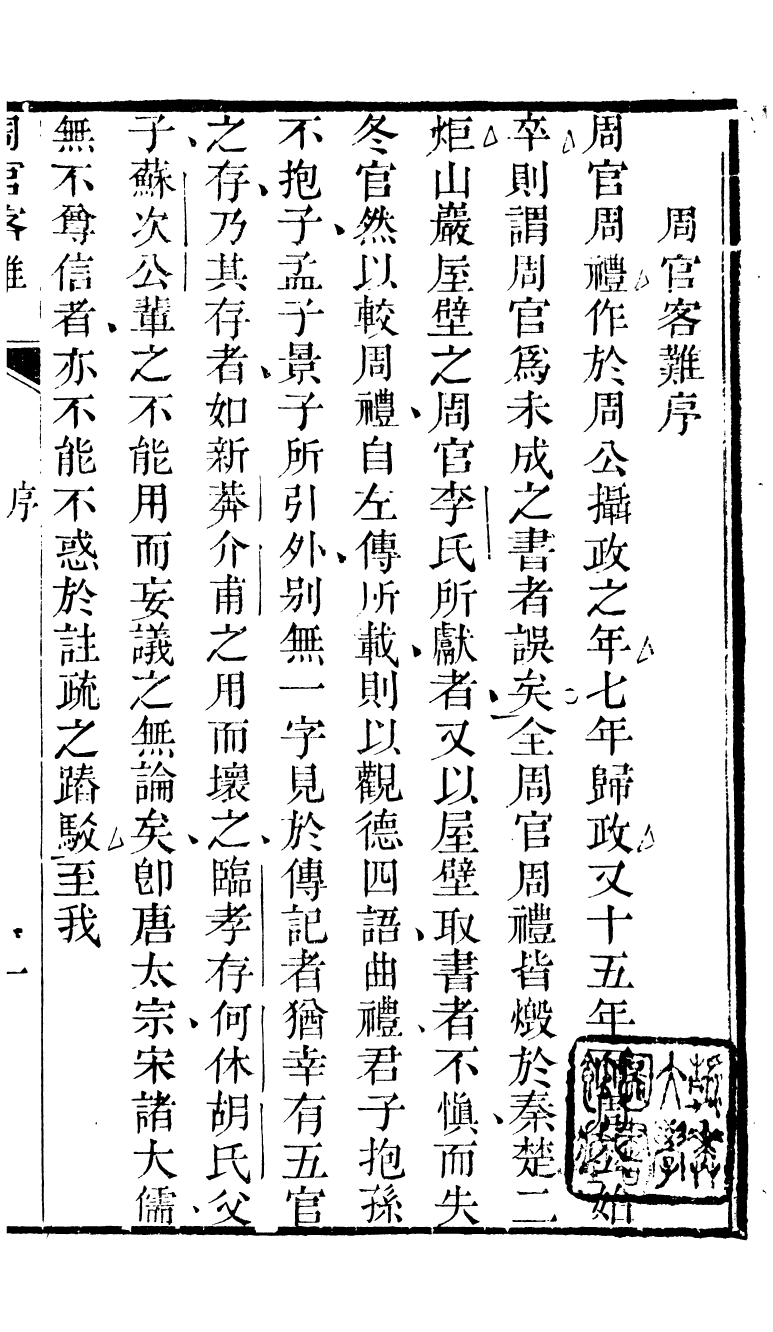 周官客難序
周官周禮作於周公攝政之年七年歸政又十五年始
卒則謂周官爲未成之書者誤矣全周官周禮皆燬於秦楚二
炬山巖屋壁之周官李氏所獻者又以屋壁取書者不愼而失
冬官然以較周禮自左傳所載則以觀德四語曲禮君子抱孫
不抱子孟子景子所引外别無一字見於傳記者猶幸有五官
之存乃其存者如新莽介甫之用而壞之臨孝存何休胡氏父
子蘇次公輩之不能用而妄議之無論矣卽唐太宗宋諸大儒
無不尊信者亦不能不惑於註疏之踳駁至我
周官客難
序
一